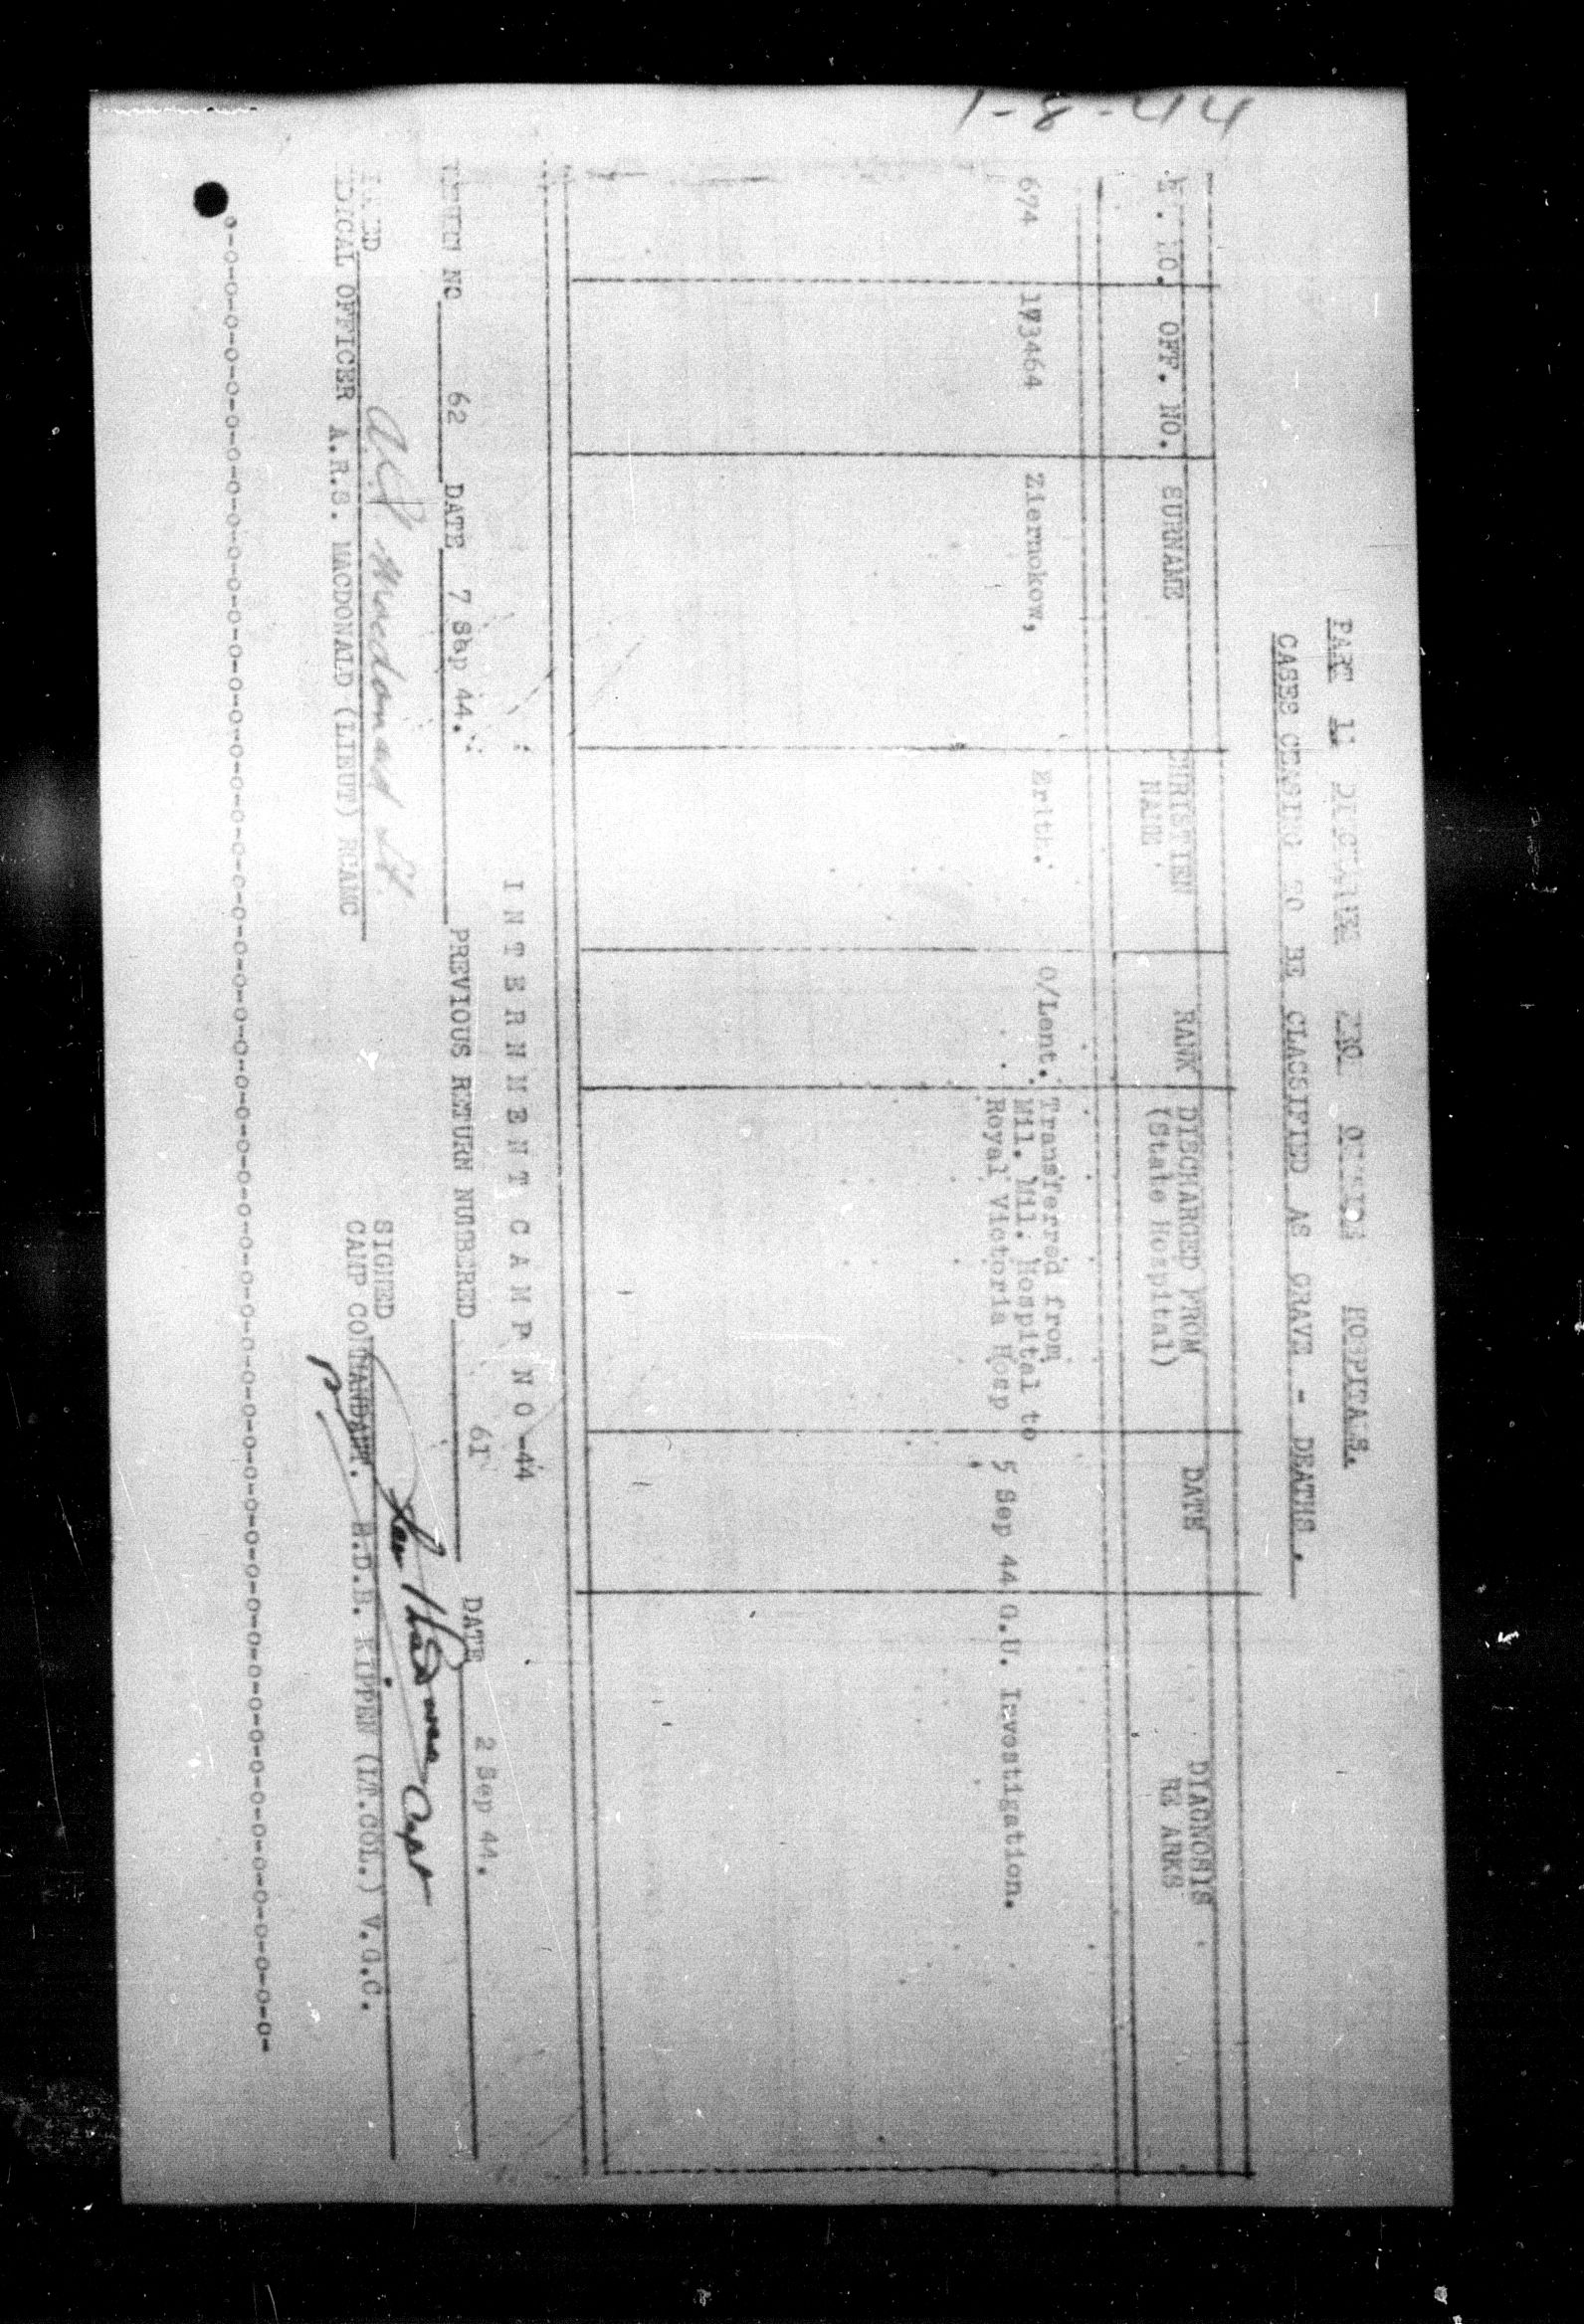 1-8-44
PART 11 DISCHARGE FROM OUTSIDE HOSPITALS.
CASES CEASING TO BE CLASSIFIED AS GRAVE - DEATHS.
NO. OFF. NO. SURNAME CHRISTIEN NAME RANK DISCHARGED FROM (State Hospital) DATE DIAGNOSIS RE ARKS
674 173464 Ziermokow, Erith. O/Leut. Transferred from
Mil. Mil. Hospital to
Royal Victoria Hosp 5 Sep 44 G.U. Investigation.
INTERNMENT CAMP NO 44
NO 62 DATE 7 Sep 44. PREVIOUS RETURN NUMBERED 61 DATE 2 Sep 44.
SIGNED
DICAL OFFICER A.R.S. MACDONALD (LIEUT) RCAMC CAMP COMMANDANT. H.D.B. KIPPEN (LT.COL.) V.G.C.